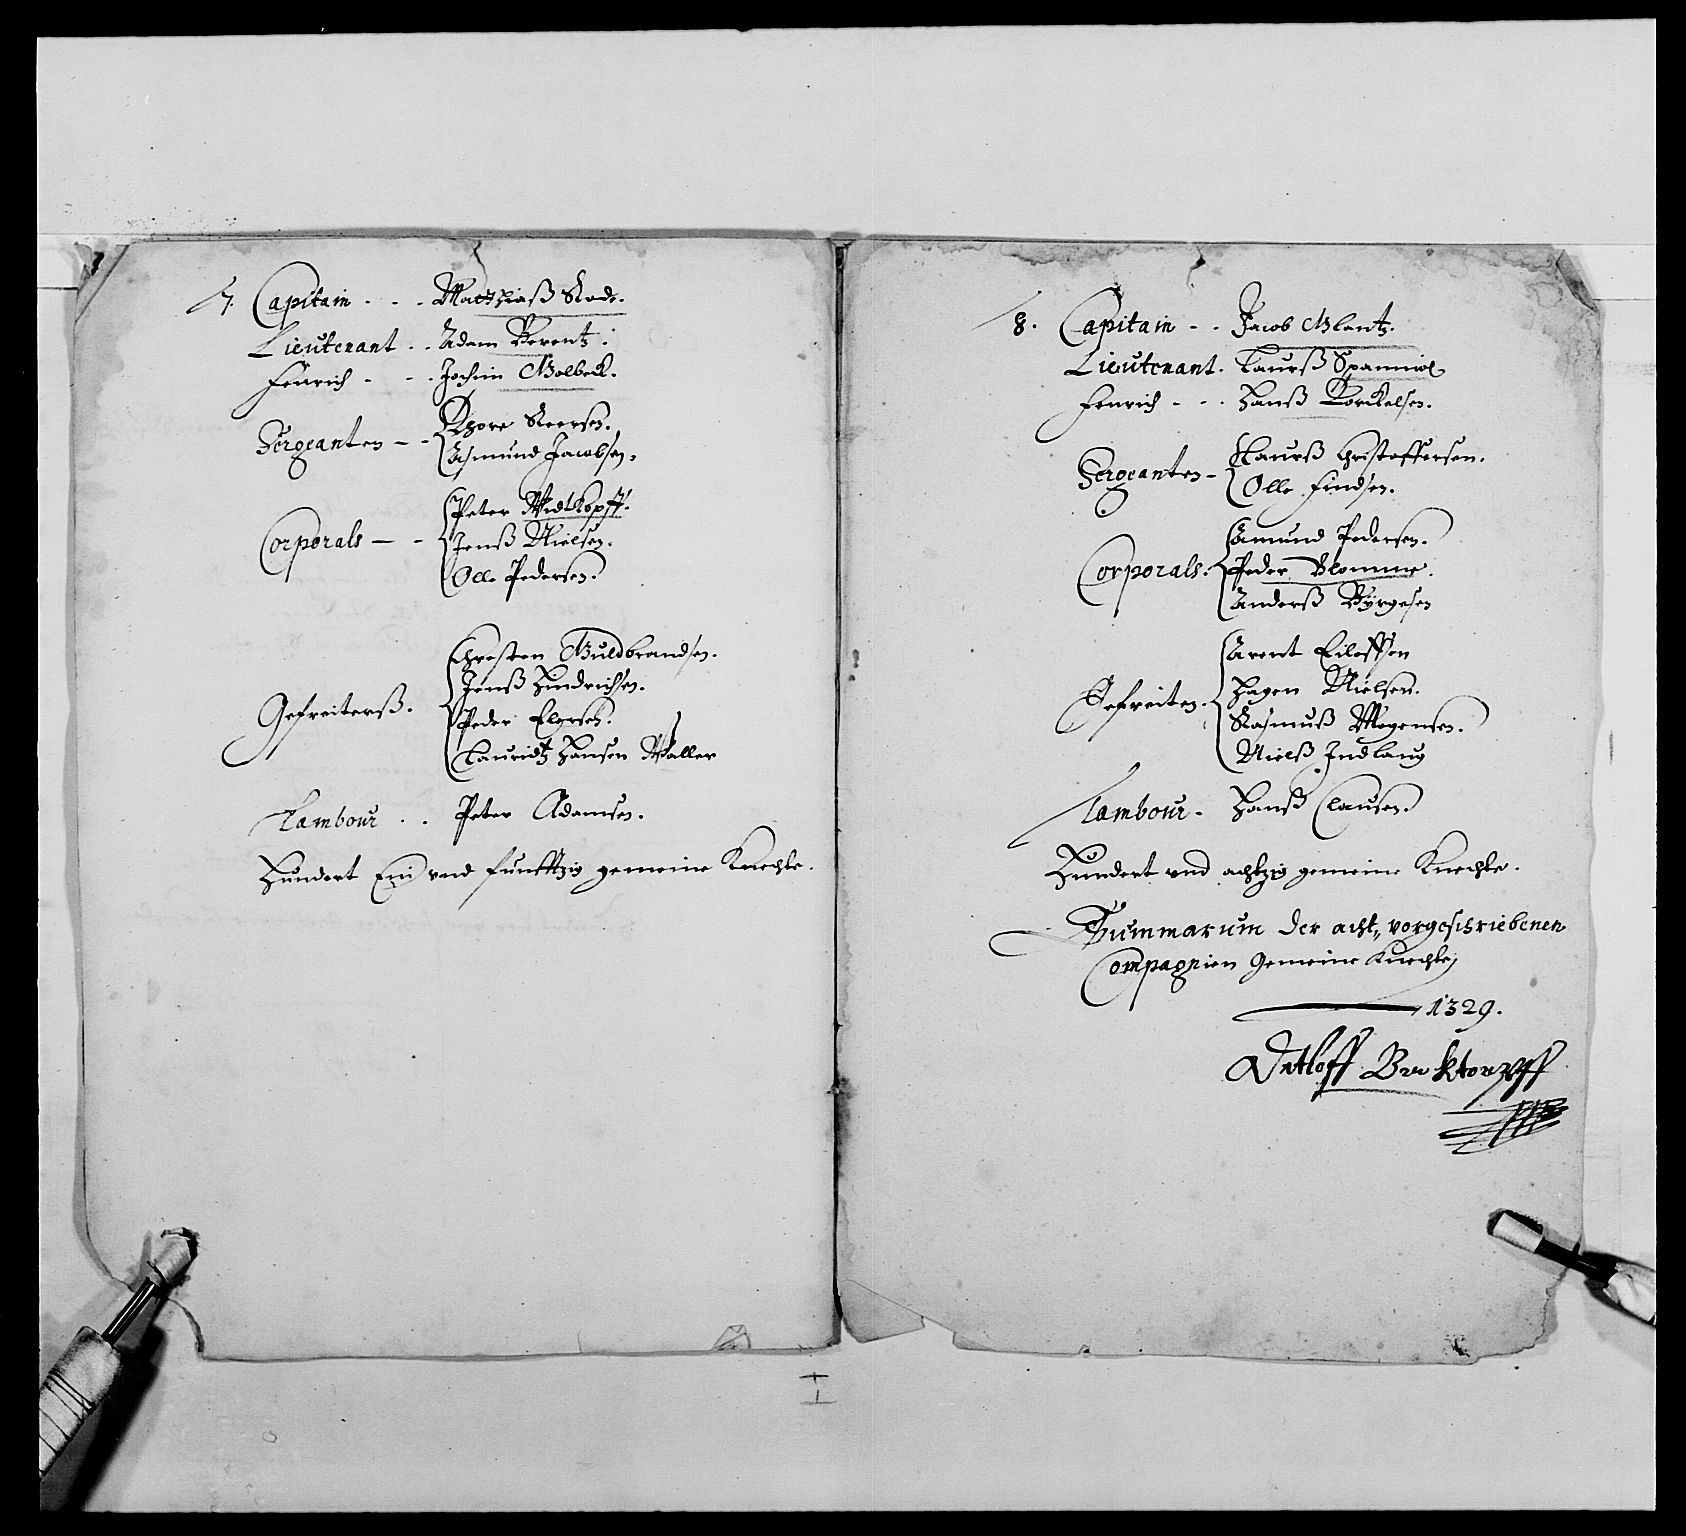 7. Capitain . . . Matthiaß Rode.
Lieutenant . . Adam Berentz.
Fenrich - - . Jochim Molbeck.
Sergeanten - - Thore Roersen.
Asmund Jacobsen.
Corporals - - Peter Widtkopff.
Jenß Nielsen.
Olle Pedersen.
Gefreiterß. Christen Guldbrandsen.
Jenß Hindrichsen.
Peder Elersen.
Lauridtz Hansen Waller
Tambour . . Peter Adamsen.
Hundert Ein und funfftzig gemeine Knechte.
8. Capitain - - Jacob Mlantz.
Lieutenant. Laurß Spanniol
Fenrich - - . Hanß Torckelsen.
Sergeanten - Laurß Christoffersen.
Olle Findsen.
Corporals. Amund Pedersen.
Peder Blomme.
Anderß Byrgesen
Gefreiten. Arent Eileffsen
Hagen Nielsen.
Rasmuß Mogensen.
Nielß Indlaug
Tambour - Hanß Clausen.
Hundert und achtzig gemeine Knechte.
Summarum der acht, vorgeschriebenen
Compagnien gemeine Knechte,
1329.
Detloff